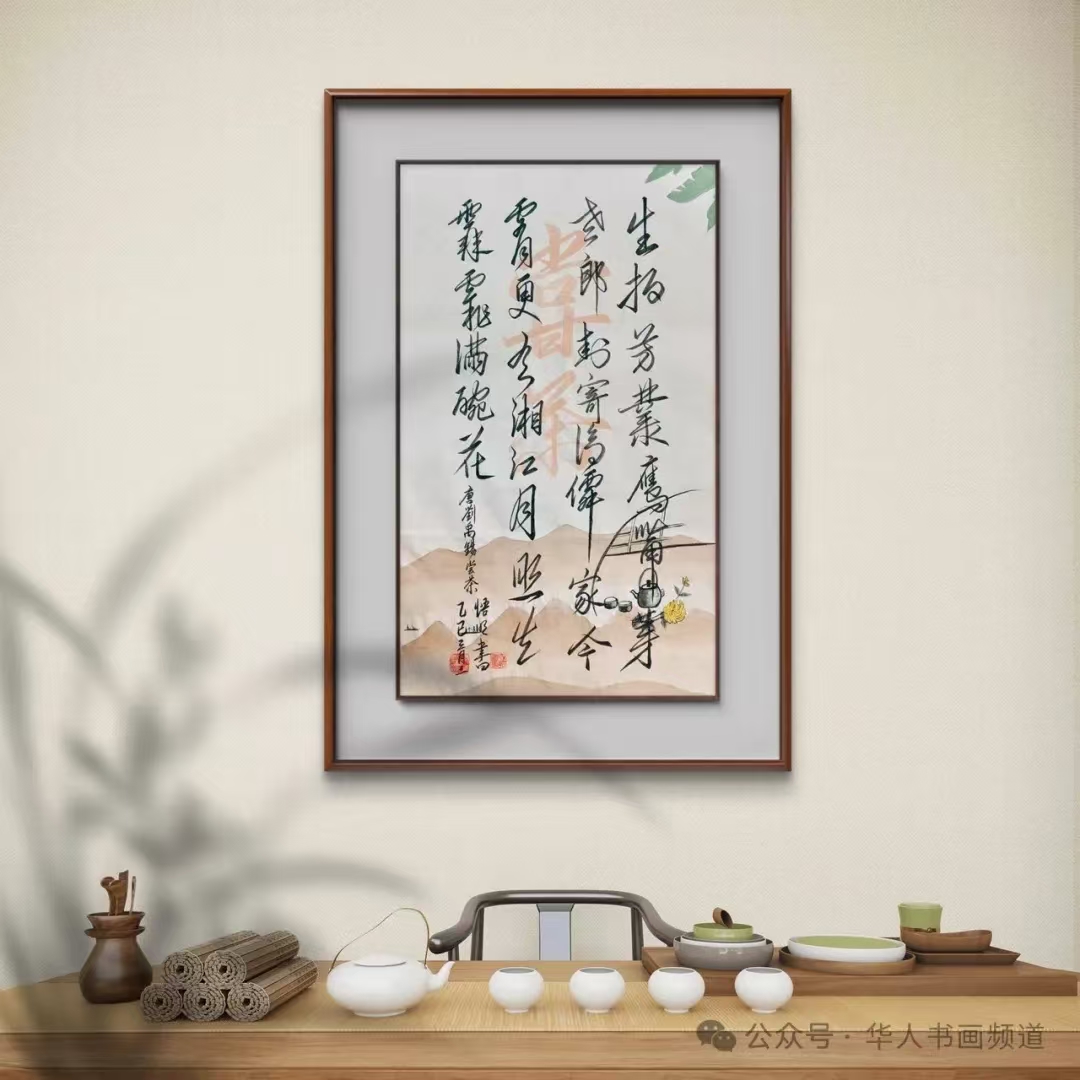 生拍芳叢鷹觜芽
老郎封寄謫僊家今
霄更有湘江月照出
满碗花
唐劉禹錫嘗茶
乙巳三月
悟 書
嘗茶
公众号 · 华人书画频道